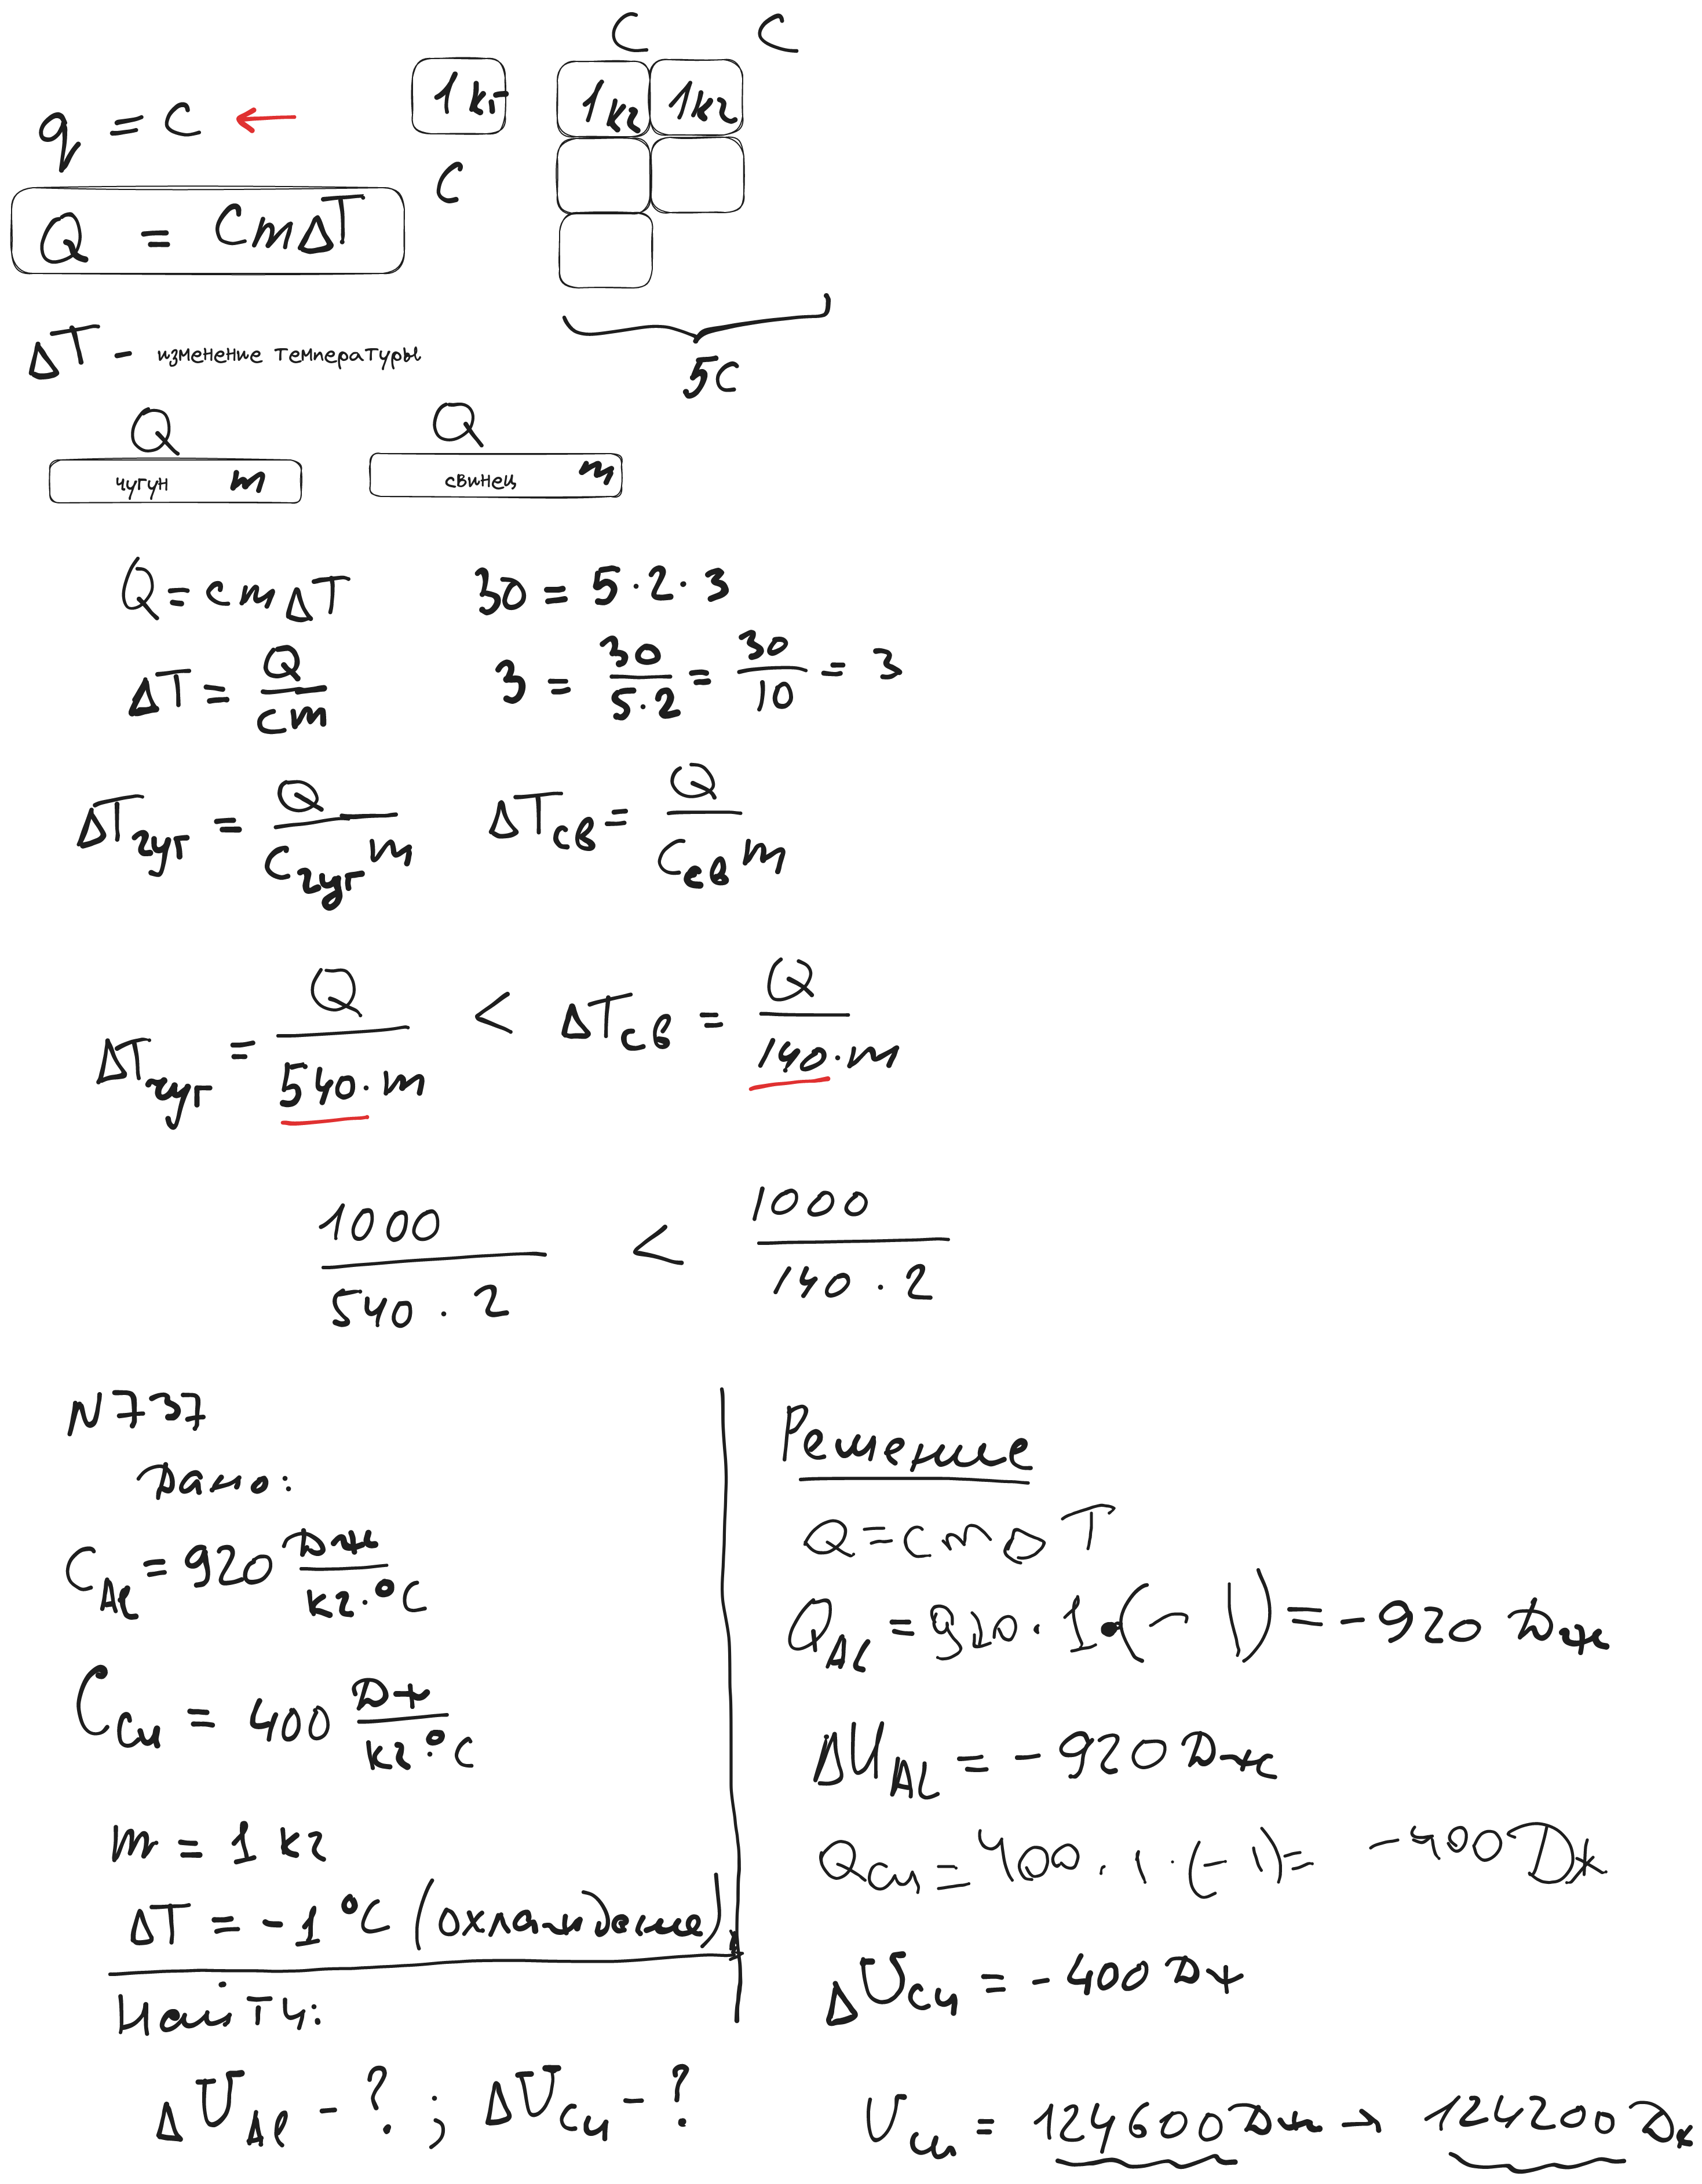 C C
1кг 1кг 1кг
q = C ←
C
Q = CmΔT
ΔT - изменение температуры
5C
Q Q
чугун m свинец m
Q = cmΔT 30 = 5·2·3
ΔT = Q/cm 3 = 30/5·2 = 30/10 = 3
ΔTчуг = Q/Cчуг m ΔTсв = Q/Cсв m
ΔTчуг = Q/540·m < ΔTсв = Q/140·m
1000/540·2 < 1000/140·2
N737
Дано:
CAl = 920 Дж/кг·°C
CCu = 400 Дж/кг·°C
m = 1 кг
ΔT = -1 °C (охлаждение)
Найти:
ΔUAl - ? ; ΔUCu - ?
Решение
Q = cmΔT
QAl = 920·1·(-1) = -920 Дж
ΔUAl = -920 Дж
QCu = 400·1·(-1) = -400 Дж
ΔUCu = -400 Дж
UCu = 124600 Дж → 124200 Дж